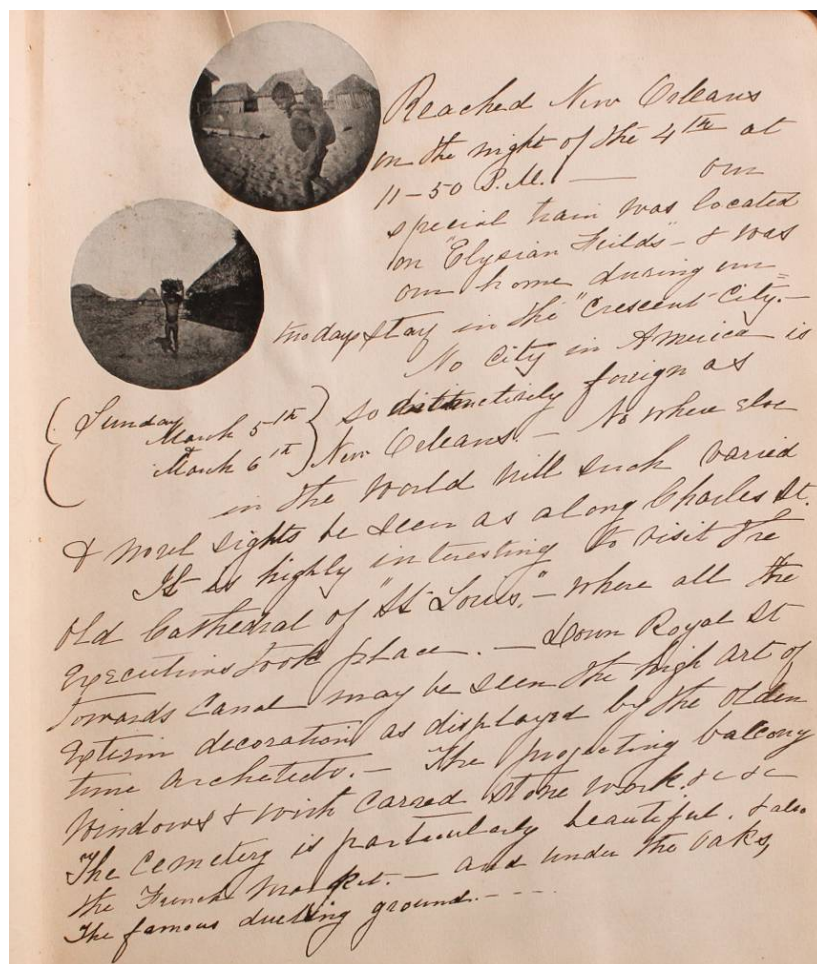 Reached New Orleans
on the night of the 4th at
11-50 P.M. — our
special train was located
on "Elysian Fields" - & was
our home during our
two days stay in the "Crescent City." -
No City in America is
(Sunday March 5th } so distinctively foreign as
& March 6th } New Orleans. - No where else
in the World will such varied
& novel sights be seen as along Charles St.
It is highly interesting to visit the
Old Cathedral of "St Louis," - where all the
Executions took place. — Down Royal St
towards Canal may be seen the high art of
Exterior decoration as displayed by the olden
time Architects. - The projecting balcony
Windows & with carved stone work. &c &c
The Cemetery is particularly beautiful. & also
the French Market. — and under the Oaks,
The famous duelling ground. - - - -